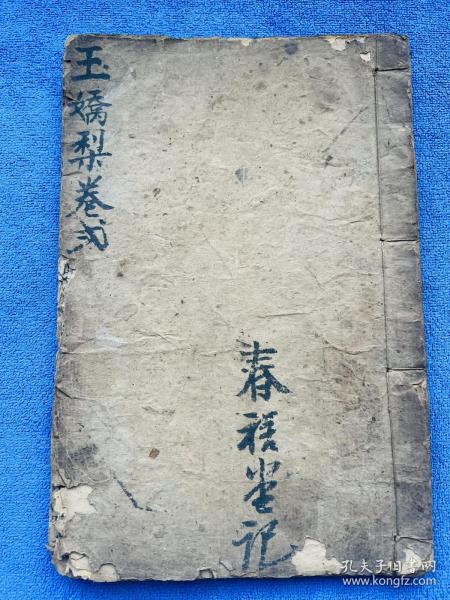 玉嬌梨卷弍
春禧堂记
孔夫子旧书网
www.kongfz.com